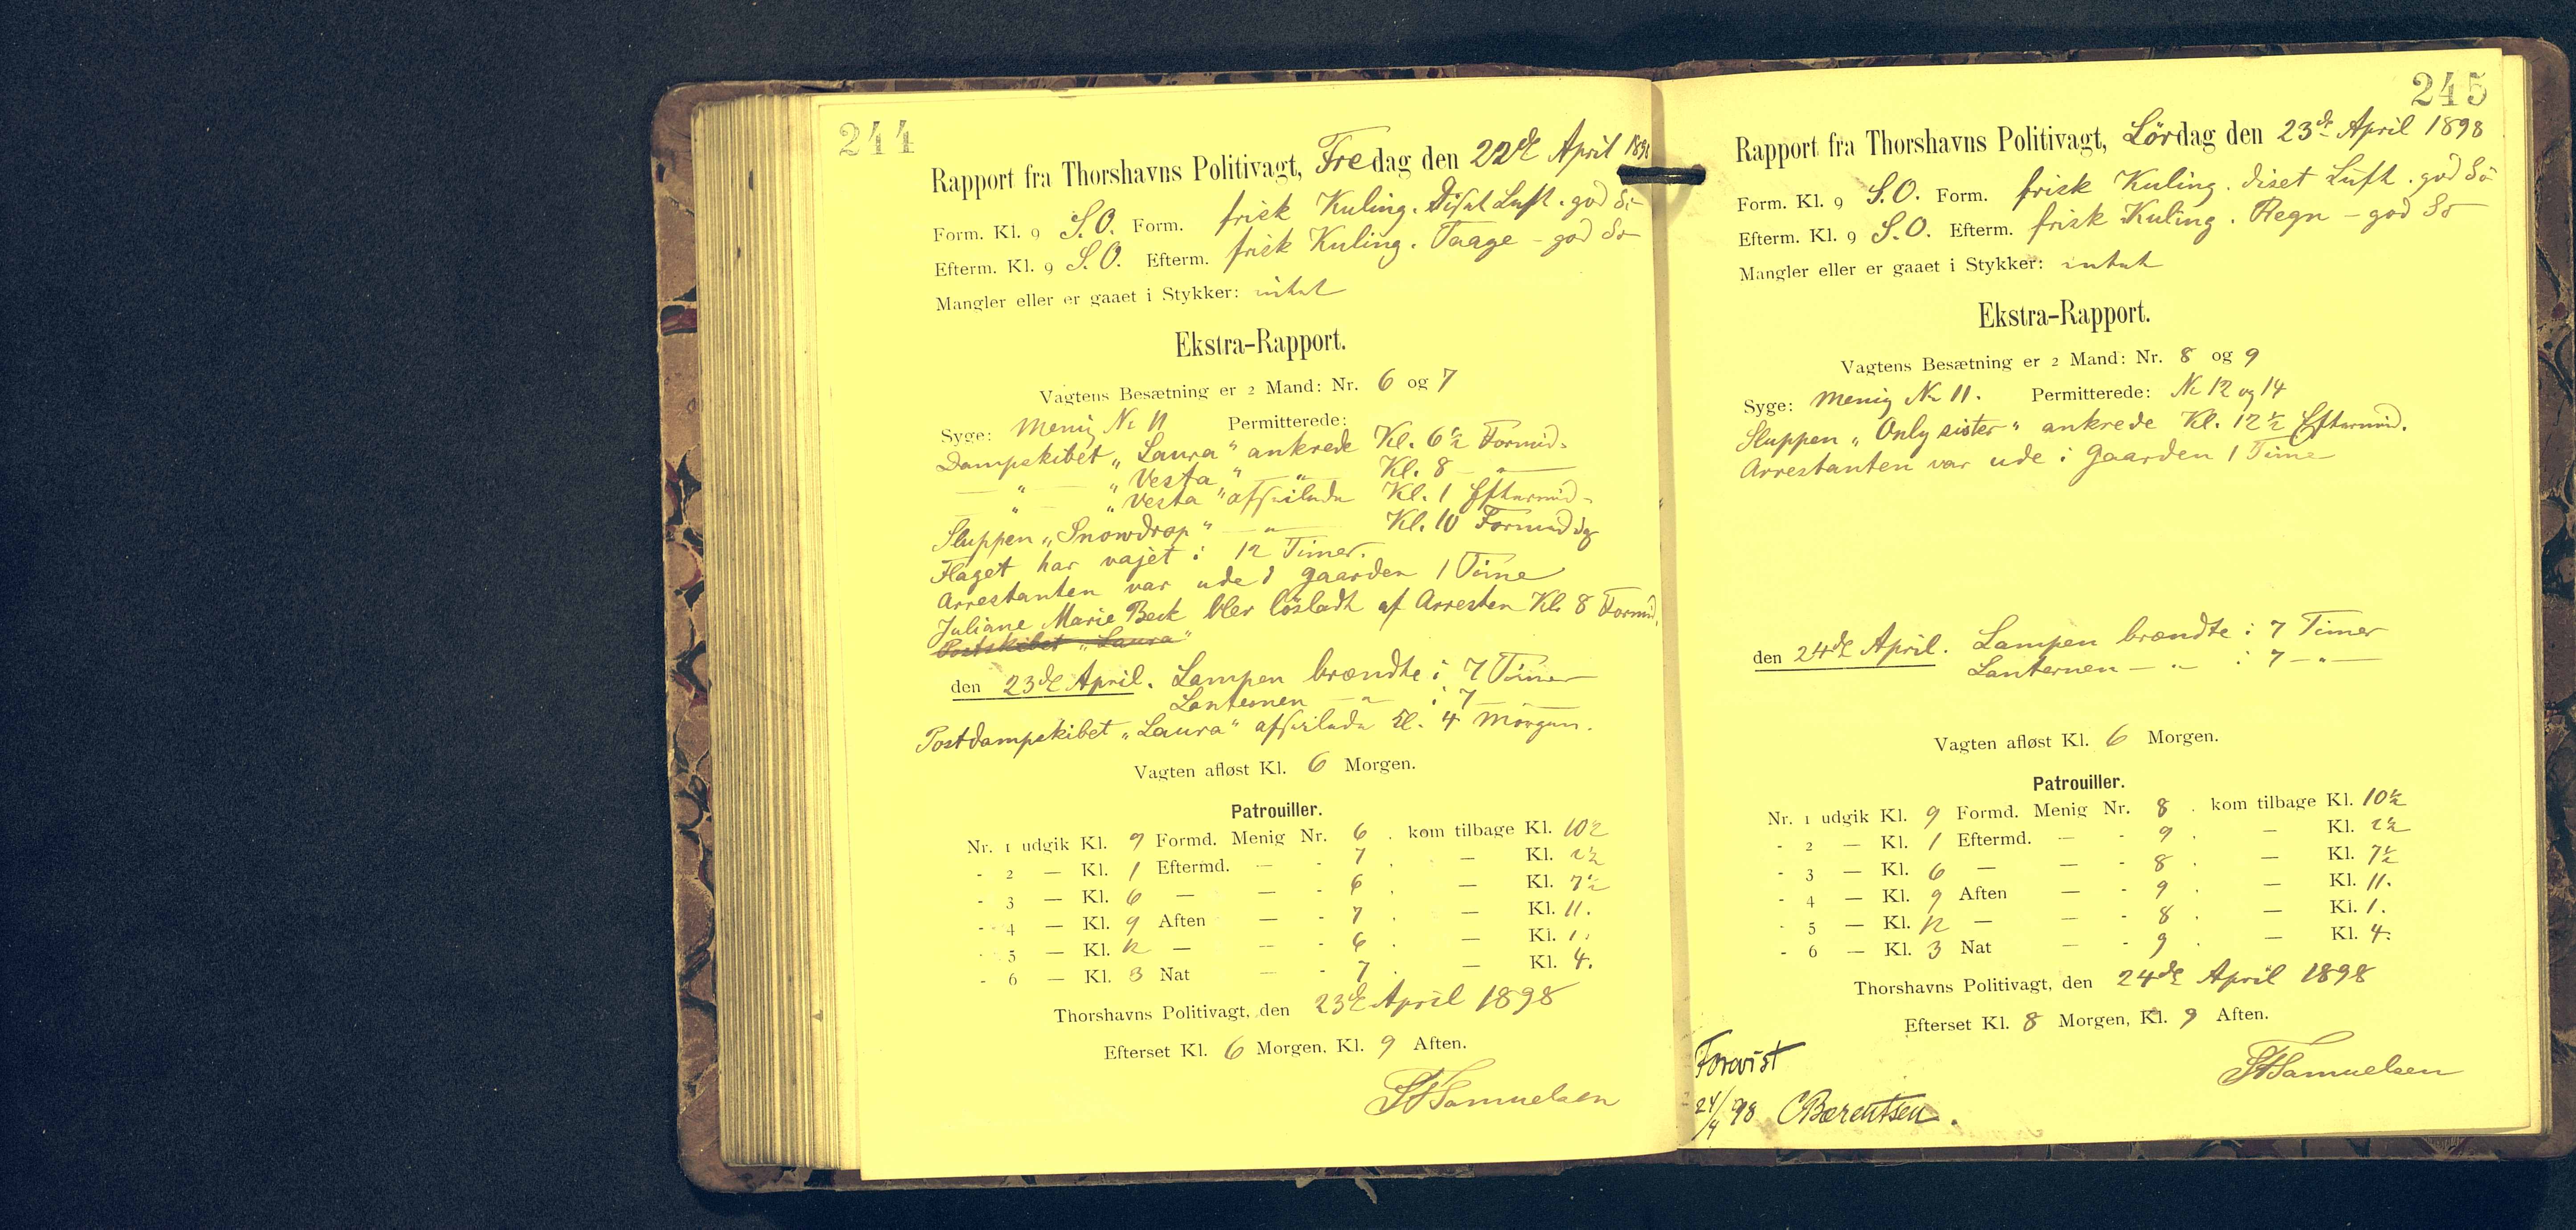 244
Rapport fra Thorshavns Politivagt, Fredag den 22de April 1898
Form. Kl. 9 S.O. Form. frisk Kuling. Diset Luft. god Sö
Efterm. Kl. 9 S.O. Efterm. frisk Kuling. Taage - god Sö
Mangler eller er gaaet i Stykker: intet
Ekstra-Rapport.
Vagtens Besætning er 2 Mand: Nr. 6 og 7
Syge: Menig Nr 11 Permitterede:
Dampskibet „Laura" ankrede Kl. 6½ Formid.
— " — „Vesta" — " — Kl. 8 — " —
— " — „Vesta" afseilede Kl. 1 Eftermid-
Sluppen „Snowdrop" — " — Kl. 10 Formiddg
Flaget har vajet i 12 Timer.
Arrestanten var ude i Gaarden 1 Time
Juliane Marie Beck blev lösladt af Arresten Kl. 8 Formid.
Postskibet „Laura"
den 23de April. Lampen brændte i 7 Timer
Lanternen — " — i 7 —
Postdampskibet „Laura" afseilede Kl. 4 Morgen.
Vagten afløst Kl. 6 Morgen.
Patrouiller.
Nr. 1 udgik Kl. 9 Formd. Menig Nr. 6 . kom tilbage Kl. 10½
- 2 — Kl. 1 Eftermd. — - 7 . — Kl. 2½
- 3 — Kl. 6 — — - 6 . — Kl. 7½
- 4 — Kl. 9 Aften — - 7 . — Kl. 11.
- 5 — Kl. 12 — — - 6 . — Kl. 1.
- 6 — Kl. 3 Nat — - 7 . — Kl. 4.
Thorshavns Politivagt, den 23de April 1898
Efterset Kl. 6 Morgen, Kl. 9 Aften.
Samuelsen
245
Rapport fra Thorshavns Politivagt, Lördag den 23de April 1898
Form. Kl. 9 S.O. Form. frisk Kuling. diset Luft. god Sö
Efterm. Kl. 9 S.O. Efterm. frisk Kuling. Regn - god Sö
Mangler eller er gaaet i Stykker: intet
Ekstra-Rapport.
Vagtens Besætning er 2 Mand: Nr. 8 og 9
Syge: Menig Nr 11. Permitterede: Nr 12 og 14
Sluppen „Only sister" ankrede Kl. 12½ Eftermid.
Arrestanten var ude i Gaarden 1 Time
den 24de April. Lampen brændte i 7 Timer
Lanternen — " — i 7 — " —
Vagten afløst Kl. 6 Morgen.
Patrouiller.
Nr. 1 udgik Kl. 9 Formd. Menig Nr. 8 . kom tilbage Kl. 10½
- 2 — Kl. 1 Eftermd. — - 9 . — Kl. 2½
- 3 — Kl. 6 — — - 8 . — Kl. 7½
- 4 — Kl. 9 Aften — - 9 . — Kl. 11.
- 5 — Kl. 12 — — - 8 . — Kl. 1.
- 6 — Kl. 3 Nat — - 9 . — Kl. 4.
Thorshavns Politivagt, den 24de April 1898
Efterset Kl. 8 Morgen, Kl. 9 Aften.
Samuelsen
Forevist
24/4 98 CBærentsen.